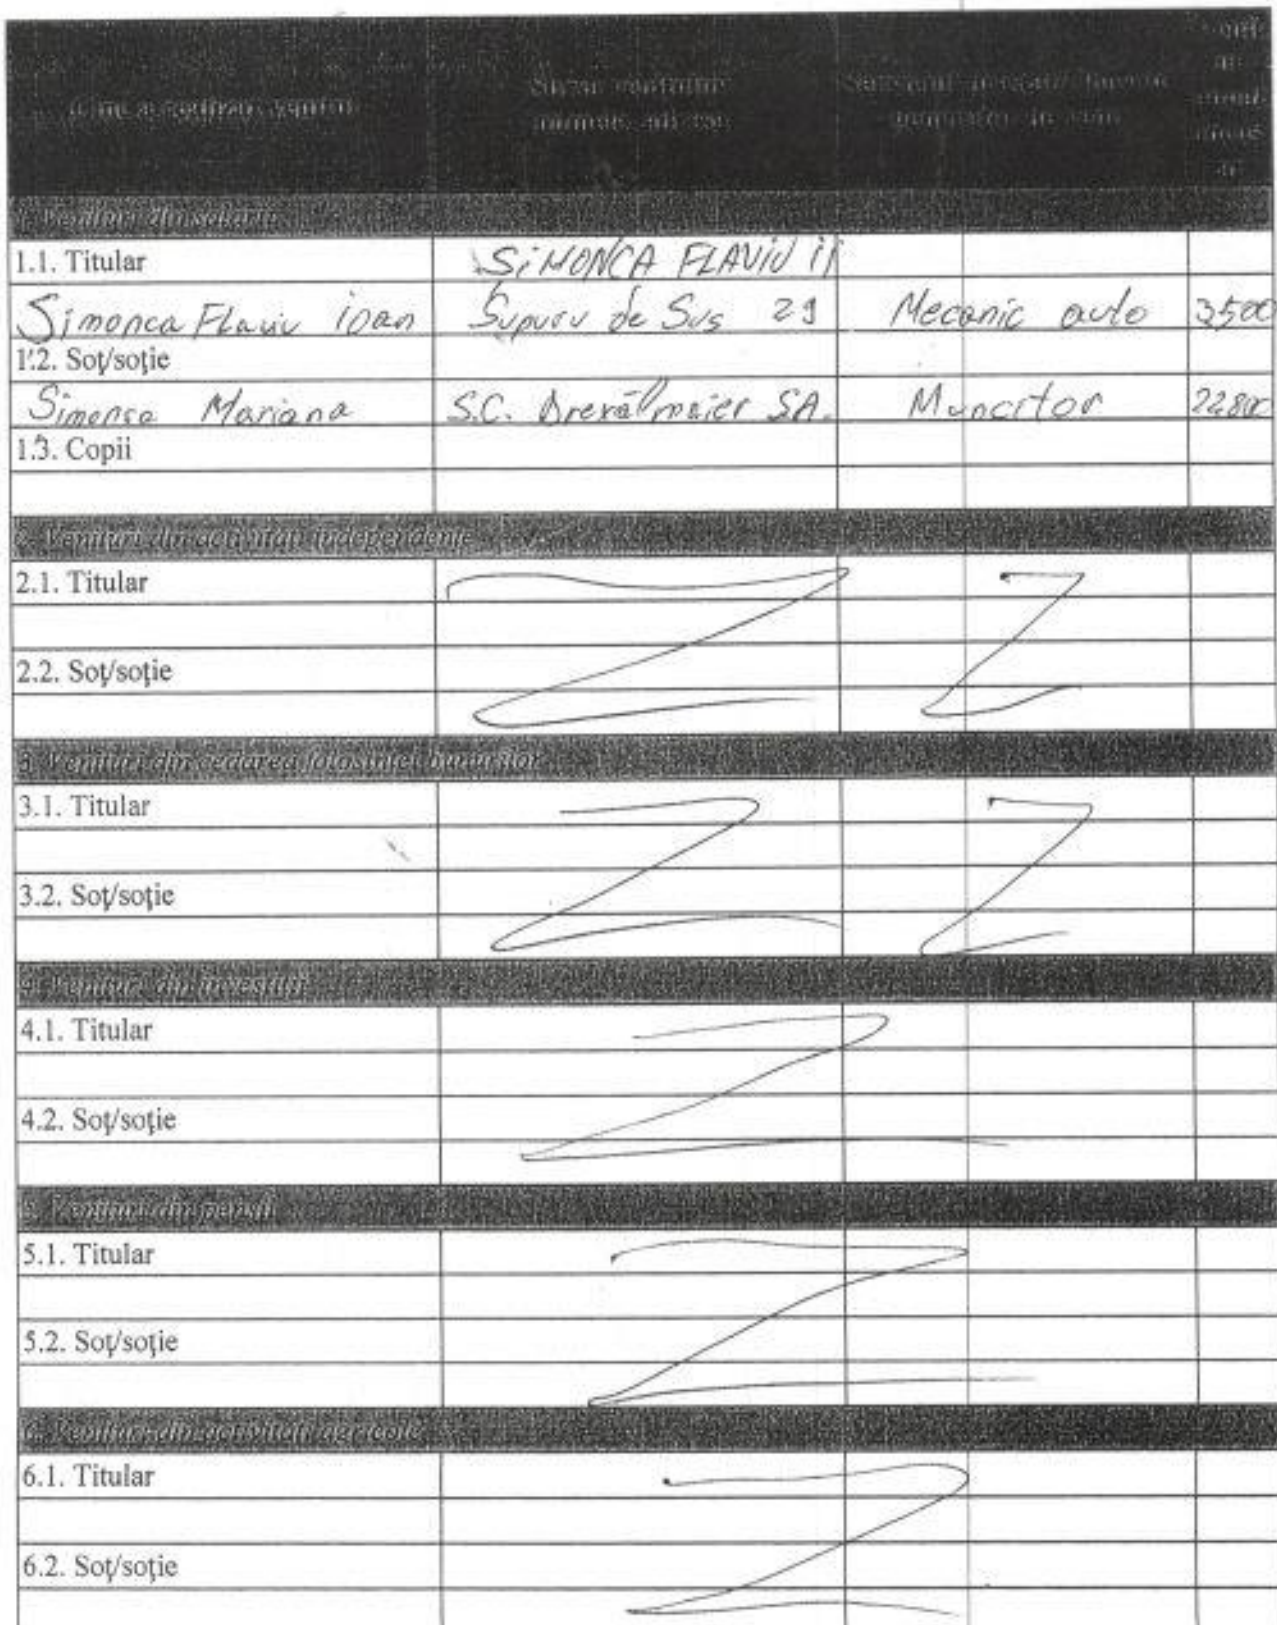 Cine a realizat venitul
Sursa venitului:
numele, adresa
Serviciul prestat/ obiectul
generator de venit
1. Venituri din salarii
1.1. Titular
SIMONCA FLAVIU II
Simonca Flaviu ioan Supuru de Sus 29 Mecanic auto 3500
1.2. Soţ/soţie
Simonca Mariana S.C. SA. Muncitor 22800
1.3. Copii
2. Venituri din activitati independente
2.1. Titular
2.2. Soţ/soţie
3. Venituri din cedarea folosintei bunurilor
3.1. Titular
3.2. Soţ/soţie
4. Venituri din investitii
4.1. Titular
4.2. Soţ/soţie
5. Venituri din pensii
5.1. Titular
5.2. Soţ/soţie
6. Venituri din activitati agricole
6.1. Titular
6.2. Soţ/soţie